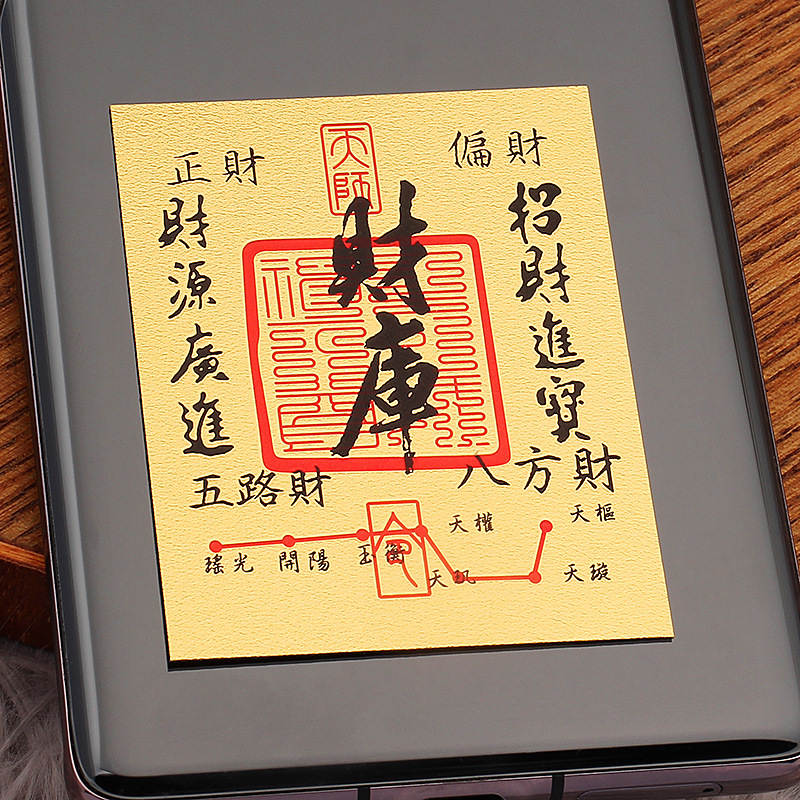 天師
正財
偏財
財庫
招財進寶
財源廣進
五路財
八方財
天樞
天璇
天璣
天權
玉衡
開陽
瑤光
命